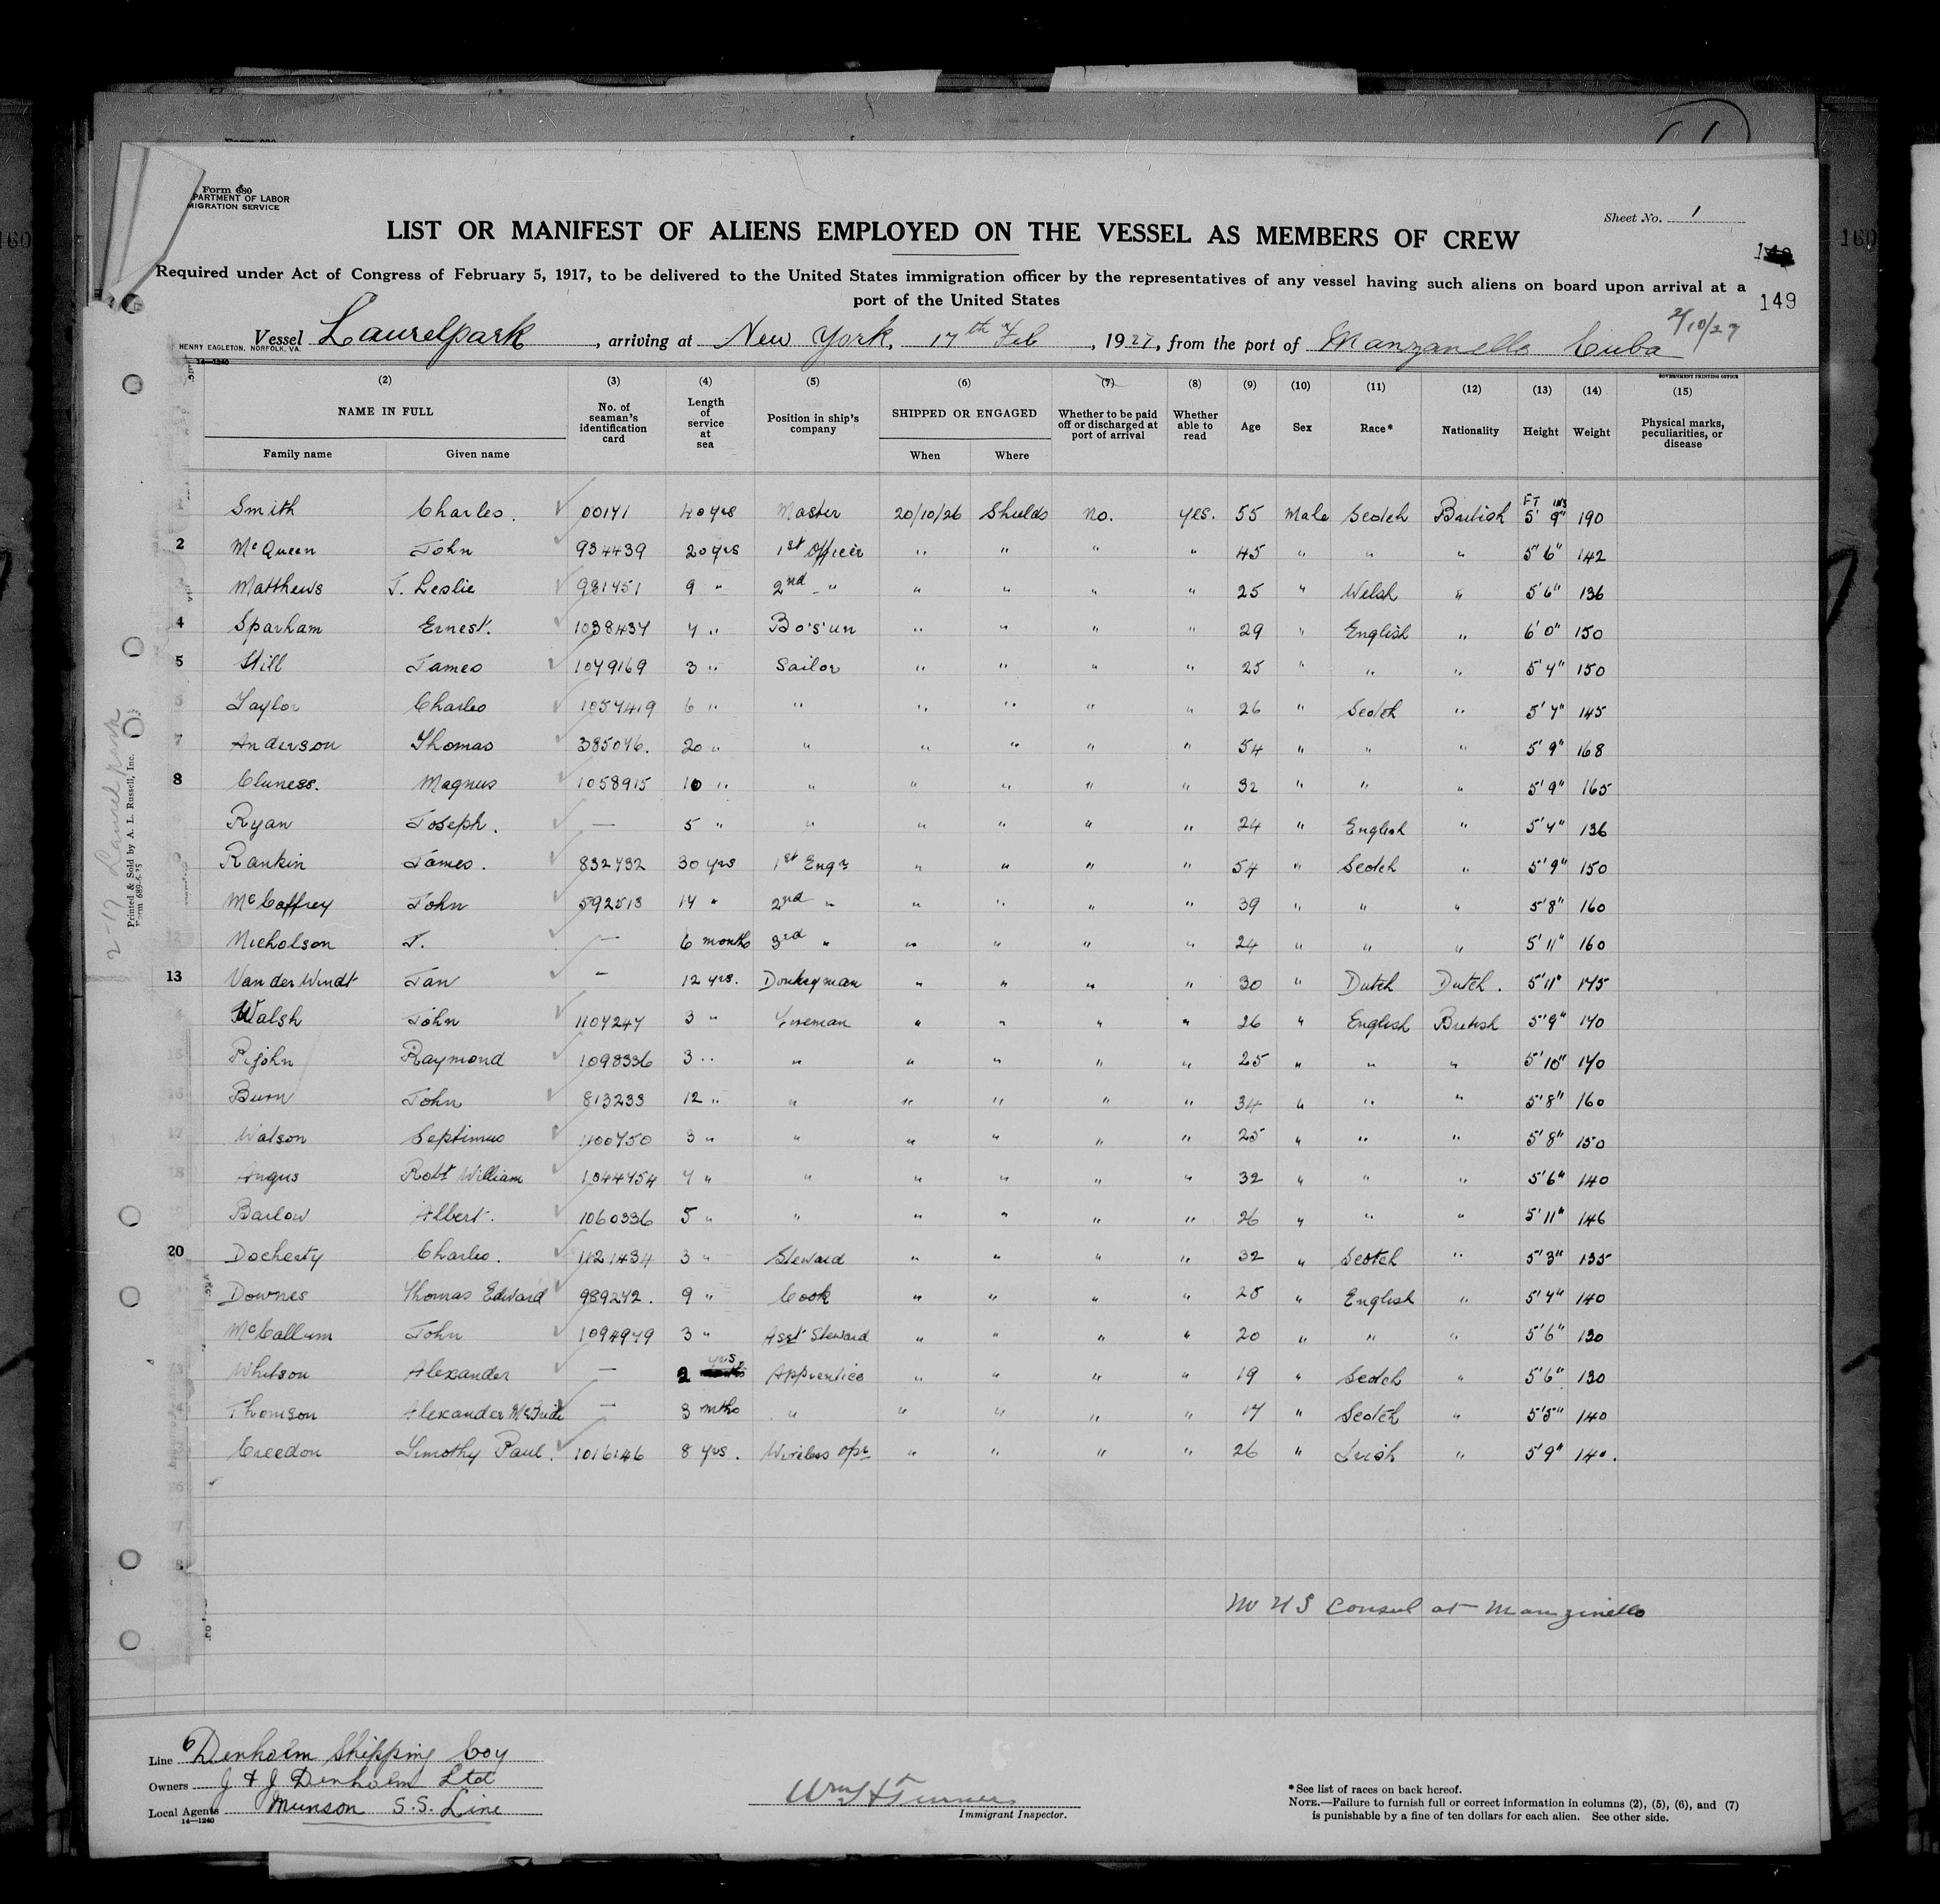 Form 680
PARTMENT OF LABOR
MIGRATION SERVICE
Sheet No. 1
LIST OR MANIFEST OF ALIENS EMPLOYED ON THE VESSEL AS MEMBERS OF CREW
Required under Act of Congress of February 5, 1917, to be delivered to the United States immigration officer by the representatives of any vessel having such aliens on board upon arrival at a
port of the United States
149
2/10/27
Vessel Laurelpark, arriving at New York, 17th Feb, 1927, from the port of Manzanello Cuba
HENRY EAGLETON, NORFOLK, VA.
14—1240
GOVERNMENT PRINTING OFFICE
(2) (3) (4) (5) (6) (7) (8) (9) (10) (11) (12) (13) (14) (15)
NAME IN FULL No. of seaman's identification card Length of service at sea Position in ship's company SHIPPED OR ENGAGED Whether to be paid off or discharged at port of arrival Whether able to read Age Sex Race* Nationality Height Weight Physical marks, peculiarities, or disease
Family name Given name When Where
FT INS
Smith Charles. 00171 40 yrs Master 20/10/26 Shields no. yes. 55 Male Scotch British 5' 9" 190
2 McQueen John 934439 20 yrs 1st Officer " " " " 45 " " " 5' 6" 142
Matthews J. Leslie 981751 9 " 2nd " " " " " 25 " Welsh " 5' 6" 136
4 Sparham Ernest. 1038437 7 " Bo's'un " " " " 29 " English " 6' 0" 150
5 Still James 1079169 3 " Sailor " " " " 25 " " " 5' 7" 150
Taylor Charles 1057419 6 " " " " " " 26 " Scotch " 5' 7" 145
7 Anderson Thomas 385076. 20 " " " " " " 54 " " " 5' 9" 168
8 Cluness. Magnus 1058915 10 " " " " " " 32 " " " 5' 9" 165
Ryan Joseph. — 5 " " " " " " 24 " English " 5' 7" 136
Rankin James. 832732 30 yrs 1st Engr " " " " 54 " Scotch " 5' 9" 150
McCaffrey John 592513 17 " 2nd " " " " " 39 " " " 5' 8" 160
12 Nicholson J. — 6 months 3rd " " " " " 24 " " " 5' 11" 160
13 Van der Windt Jan — 12 yrs. Donkeyman " " " " 30 " Dutch Dutch. 5' 11" 175
Walsh John 1107247 3 " Fireman " " " " 26 " English British 5' 9" 170
15 Pijohn Raymond 1098336 3 " " " " " " 25 " " " 5' 10" 170
16 Burn John 813233 12 " " " " " " 34 " " " 5' 8" 160
17 Watson Septimus 1100750 3 " " " " " " 25 " " " 5' 8" 150
18 Angus Robt William 1044754 7 " " " " " " 32 " " " 5' 6" 140
Barlow Albert. 1060336 5 " " " " " " 26 " " " 5' 11" 146
20 Docherty Charles. 1121434 3 " Steward " " " " 32 " Scotch " 5' 3" 135
Downes Thomas Edward 989272. 9 " Cook " " " " 25 " English " 5' 7" 140
McCallum John 1094979 3 " Asst Steward " " " " 20 " " " 5' 6" 130
Whitson Alexander — 2 yrs. Apprentice " " " " 19 " Scotch " 5' 6" 130
Thomson Alexander McBride — 3 mths " " " " " 17 " Scotch " 5' 5" 140
Creedon Timothy Paul. 1016146 8 yrs. Wireless Opr " " " " 26 " Irish " 5' 9" 140.
2-17 Laurelpark
Printed & Sold by A. L. Russell, Inc.
No U S Consul at Manzinello
Line Denholm Shipping Coy
Owners J & J Denholm Ltd
Local Agents Munson S.S. Line
14—1240
Wm H Turner
Immigrant Inspector.
*See list of races on back hereof.
NOTE.—Failure to furnish full or correct information in columns (2), (5), (6), and (7)
is punishable by a fine of ten dollars for each alien. See other side.
160
160